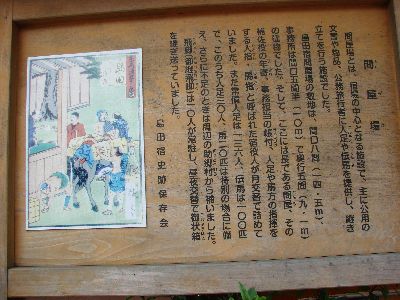 問屋場
問屋場とは、宿駅の中心となる施設で、主に公用の
文書や物品、公務旅行者に人足や伝馬を提供し、継ぎ
立てを行う施設でした。
島田宿問屋場の敷地は、間口八間(一四・五m)
事務所は間口五間半(一〇m)で奥行五間(九・一m)
の建物でした。そして、ここには長である問屋、その
補佐役の年寄、事務担当の帳付、人足や馬方の指揮を
する人指・馬指と呼ばれた宿役人が月交替で詰めて
いました。また常備人足は一三六人、伝馬は一〇〇匹
で、このうち人足三〇人、馬二〇匹は特別の場合に備
え、さらに不足のときは周辺の助郷村から補いました。
飛脚(御継飛脚)は一〇人が常駐し、昼夜交替で御状箱
を継ぎ送っていました。
島田宿史跡保存会
島田